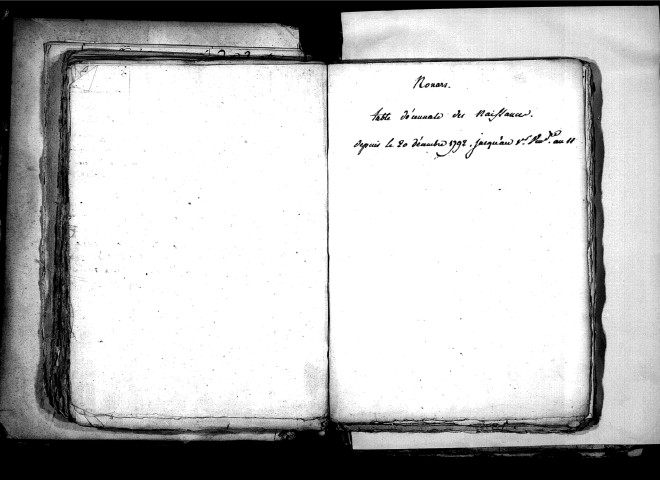 Rouars.
table décennale des Naissances.
depuis le 20 décembre 1792. jusqu'au 1er. Vend.re an 11